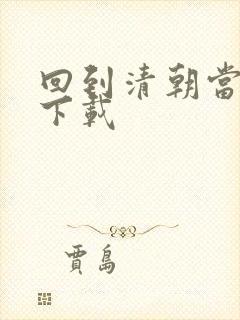 回到清朝當
下載
賈島